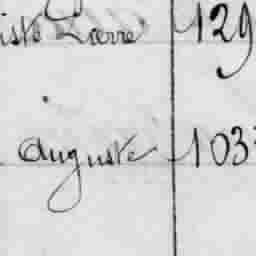 iste Larré 129
Auguste 103